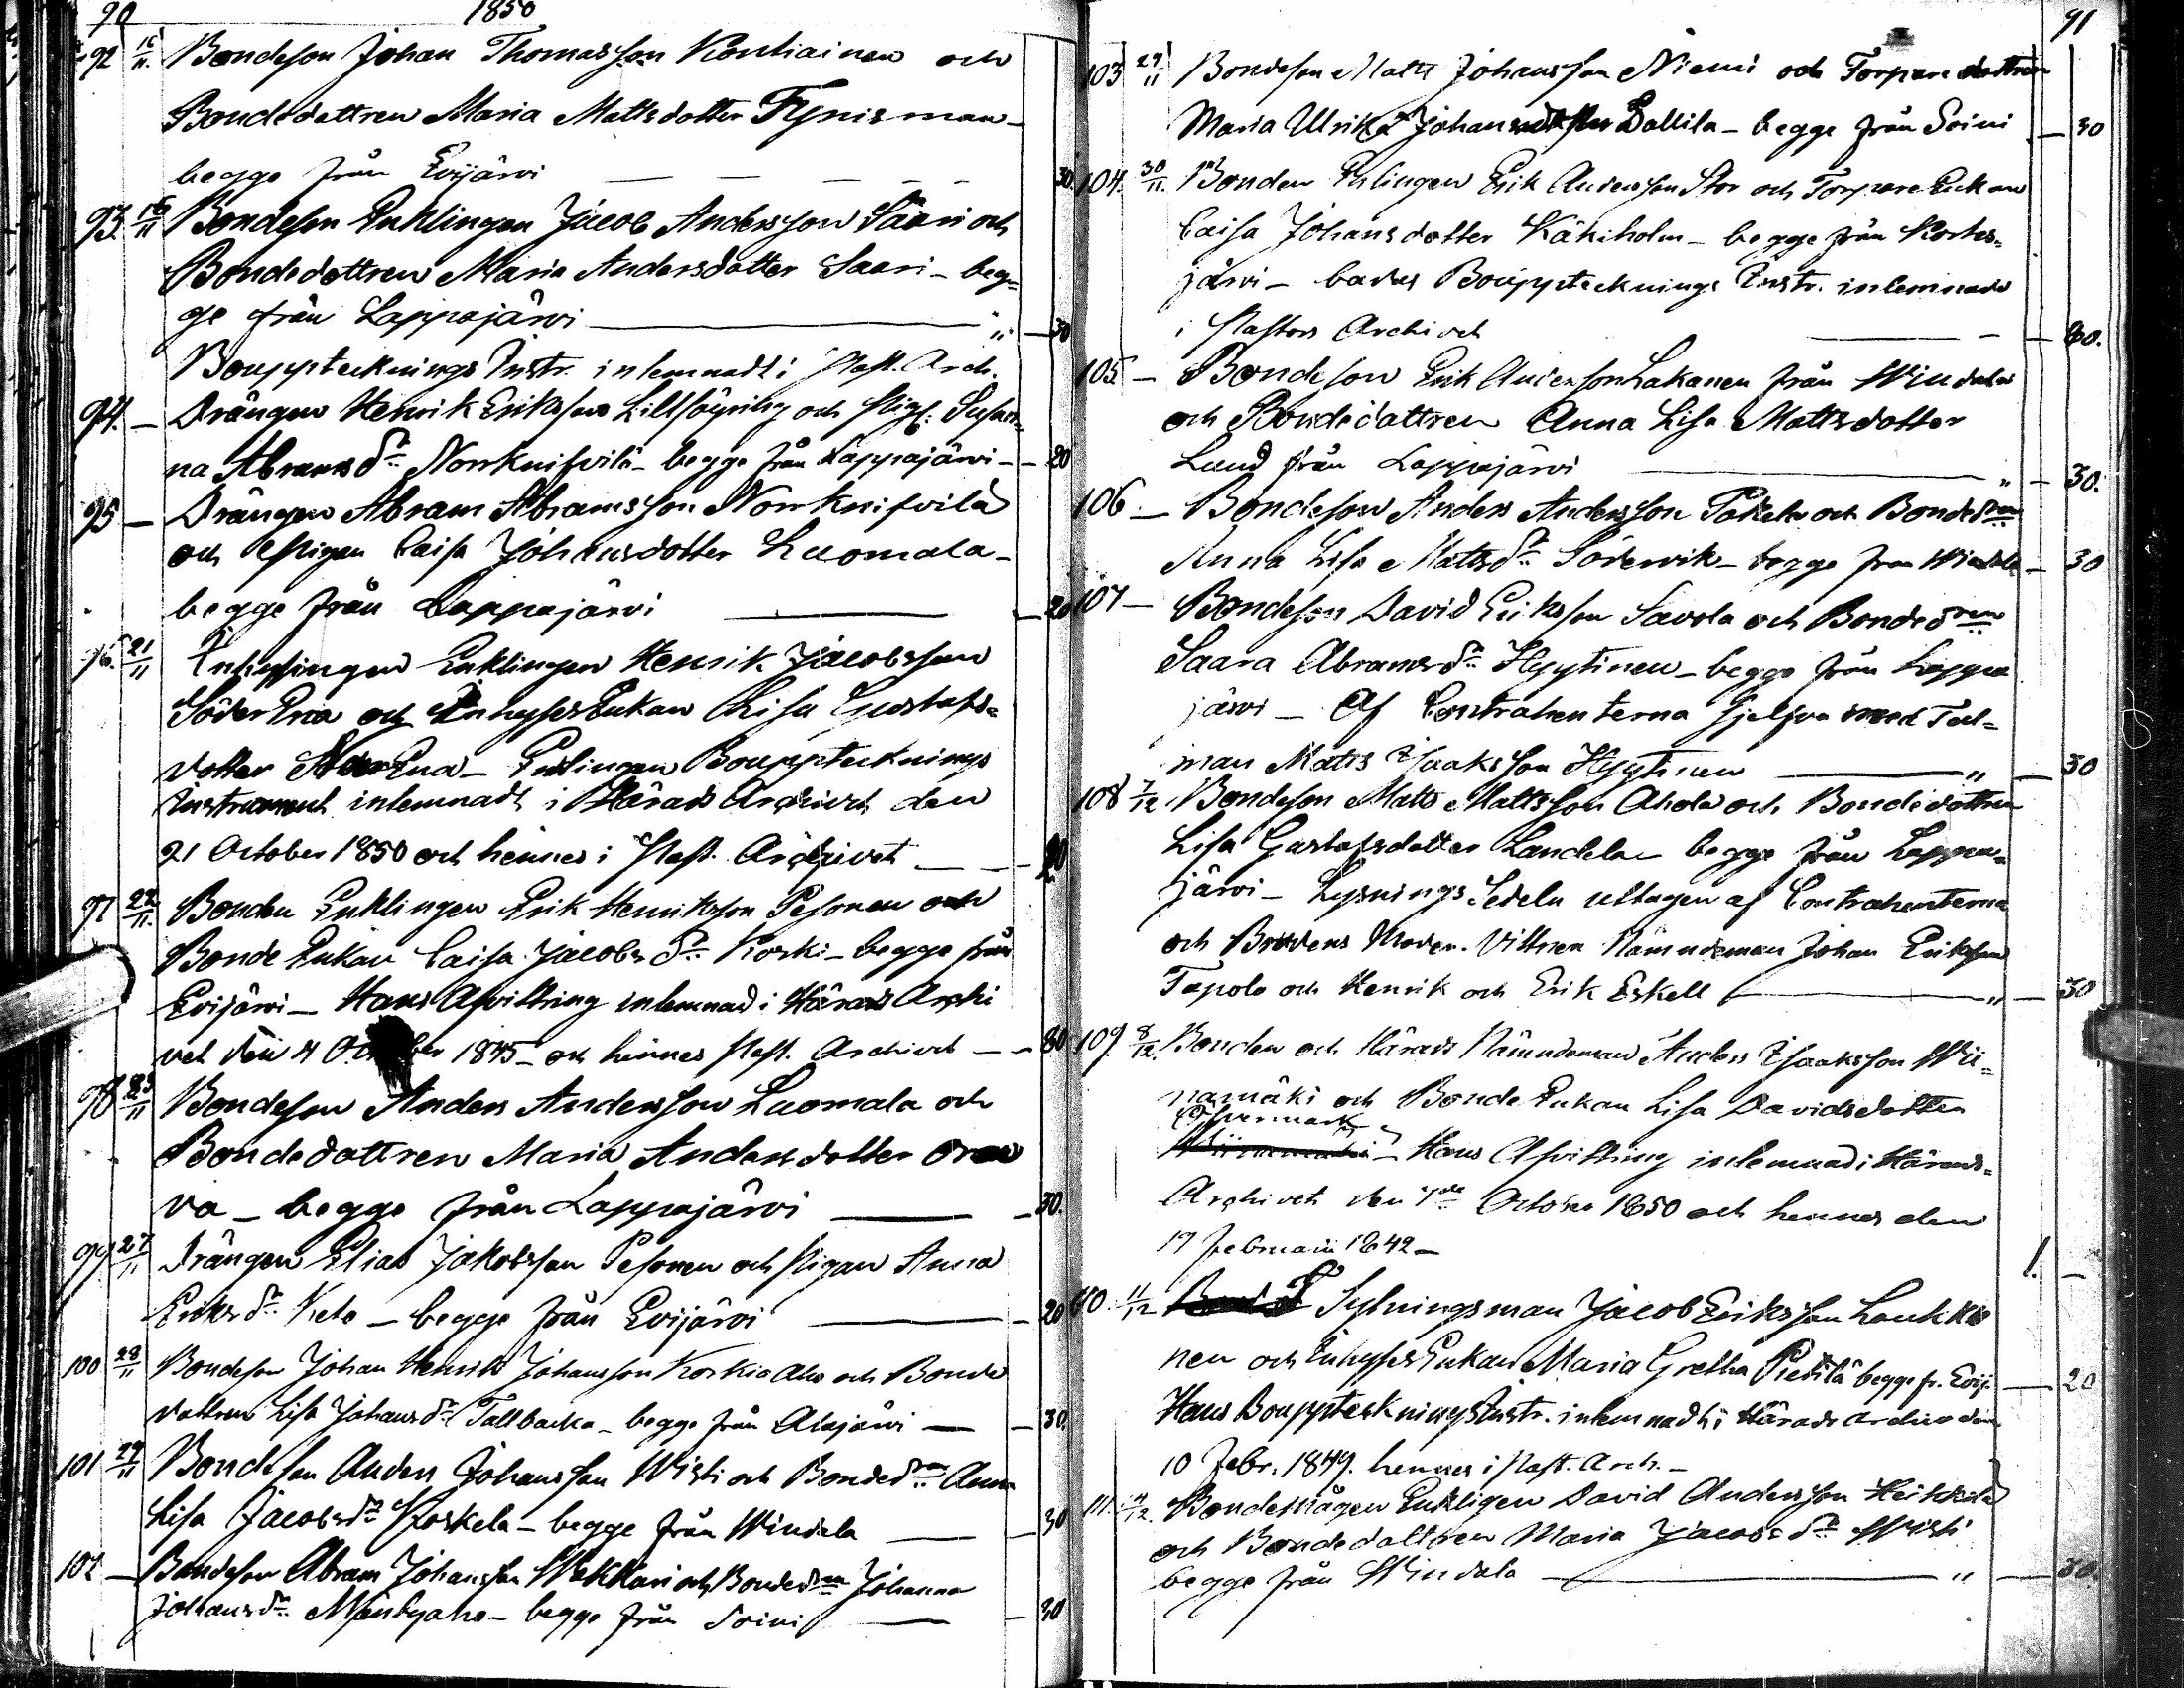 90
1850
92 16/11 Bondeson Johan Thomasson Kontiainen och
Bondedottren Maria Mattsdotter Fynisman-
begge från Evijärvi — — — — 30.
93. 16/11 Bondeson Enklingen Jacob Andersson Saari och
Bondedottren Maria Andersdotter Saari - beg=
ge från Lappajärvi — " — 30
Bouppteknings Instr. inlemnadt i Past. Arch.
94. — Drängen Henrik Eriksson Lillsöyring och Pig. Susan=
na Abramsdr. Norrknifvilä - begge från Lappajärvi - — 20
95 — Drängen Abram Abramsson Norrknifvilä
och Pigan Caisa Johansdotter Luomala -
begge från Lappajärvi — — 20
96. 21/11 Inhysingen Enklingen Henrik Jacobsson
Söder Ena och Inhyses Enkan Lisa Gustafs=
dotter Ena - Enklingen Bouppteknings
Instrument inlemnadt i Härads Archivet den
21 October 1850 och hennes i Past. Archivet — 20
97 22/11. Bonden Enklingen Erik Henriksson Pesonen och
Bonde Enkan Caisa Jacobs dr. Koski - begge från
Evijärvi - Hans Afvittring inlemnad i Härads Archi
vet den 4 October 1845 - och hennes Past. Archivet — — 80
98 23/11 Bondeson Anders Andersson Luomala och
Bondedottren Maria Andersdotter Ora
va - begge från Lappajärvi — — 30.
99 27/11 Drängen Elias Jakobsson Pesonen och Pigan Anna
Eriks dr. Keto - begge från Evijärvi — — 20
100 28/11 Bondeson Johan Henrik Johansson Korkia Aho och Bonde
dottren Lisa Johans dr. Tallbacka - begge från Alajärvi — — 30.
101 29/11 Bondeson Anders Johansson Wisti och Bondedrn Anna
Lisa Jacobsdr Koskela - begge från Windala — — 30
102 — Bondeson Abram Johansson Wekkari och Bondedrn Johanna
Johans dr. Mäntyaho - begge från Soini — — 30
91
103 29/11 Bondeson Matts Johansson Niemi och Torpare dottren
Maria Ulrika Johansdotter Dallila - begge från Soini — 30
104. 30/11. Bonden Enklingen Erik Andersson Stor och Torpare Enkan
Caisa Johansdotter Käkiholm - begge från Kortes=
järvi - bådas Bouppteknings Instr. inlemnade
i Pastors Archivet — — 80.
105 — Bondeson Erik Andersson Lakanen från Windala
och Bondedottren Anna Lisa Mattsdotter
Lund från Lappajärvi — " — 30.
106 — Bondeson Anders Andersson Pokela och Bondedrn
Anna Lisa Mattsdr. Södervik - begge från Windala — 30
107 — Bondeson David Eriksson Savola och Bondedren
Saara Abramsdr. Hyytinen - begge från Lappa
järvi - Af Contrahenterna sjelfva med Tal=
man Matts Isaaksson Hyytinen — " — 30
108 7/12 Bondeson Matts Mattsson Ahola och Bondedottren
Lisa Gustafsdotter Landela - begge från Lappa=
järvi - Lysnings Sedeln uttagen af Contrahenterna
och Brudens Moder. Vittnen Nämndeman Johan Eriksson
Tapola och Henrik och Erik Eskell — " — 30
109. 8/12. Bonden och Härads Nämndeman Anders Isaaksson Wii=
namäki och Bonde Enkan Lisa Davidsdotter
Öfvermark
- Hans Afvittring inlemnad i Härads=
Archivet den 7de October 1850 och hennes den
19 Februarii 1842 - 1. —
110 11/12 Sytningsman Jacob Eriksson Laukko
nen och Inhyses Enkan Maria Gretha Pietilä begge fr. Evij. — 20
Hans Bouppteknings Instr. inlemnadt i Härads archivo den
10 Febr. 1849. hennes i Past. Arch. -
111. 11/12. Bondemågen Enkligen David Andersson Heikkilä
och Bondedottren Maria Jacobsdr. Wisti
begge från Windala — " — 30.